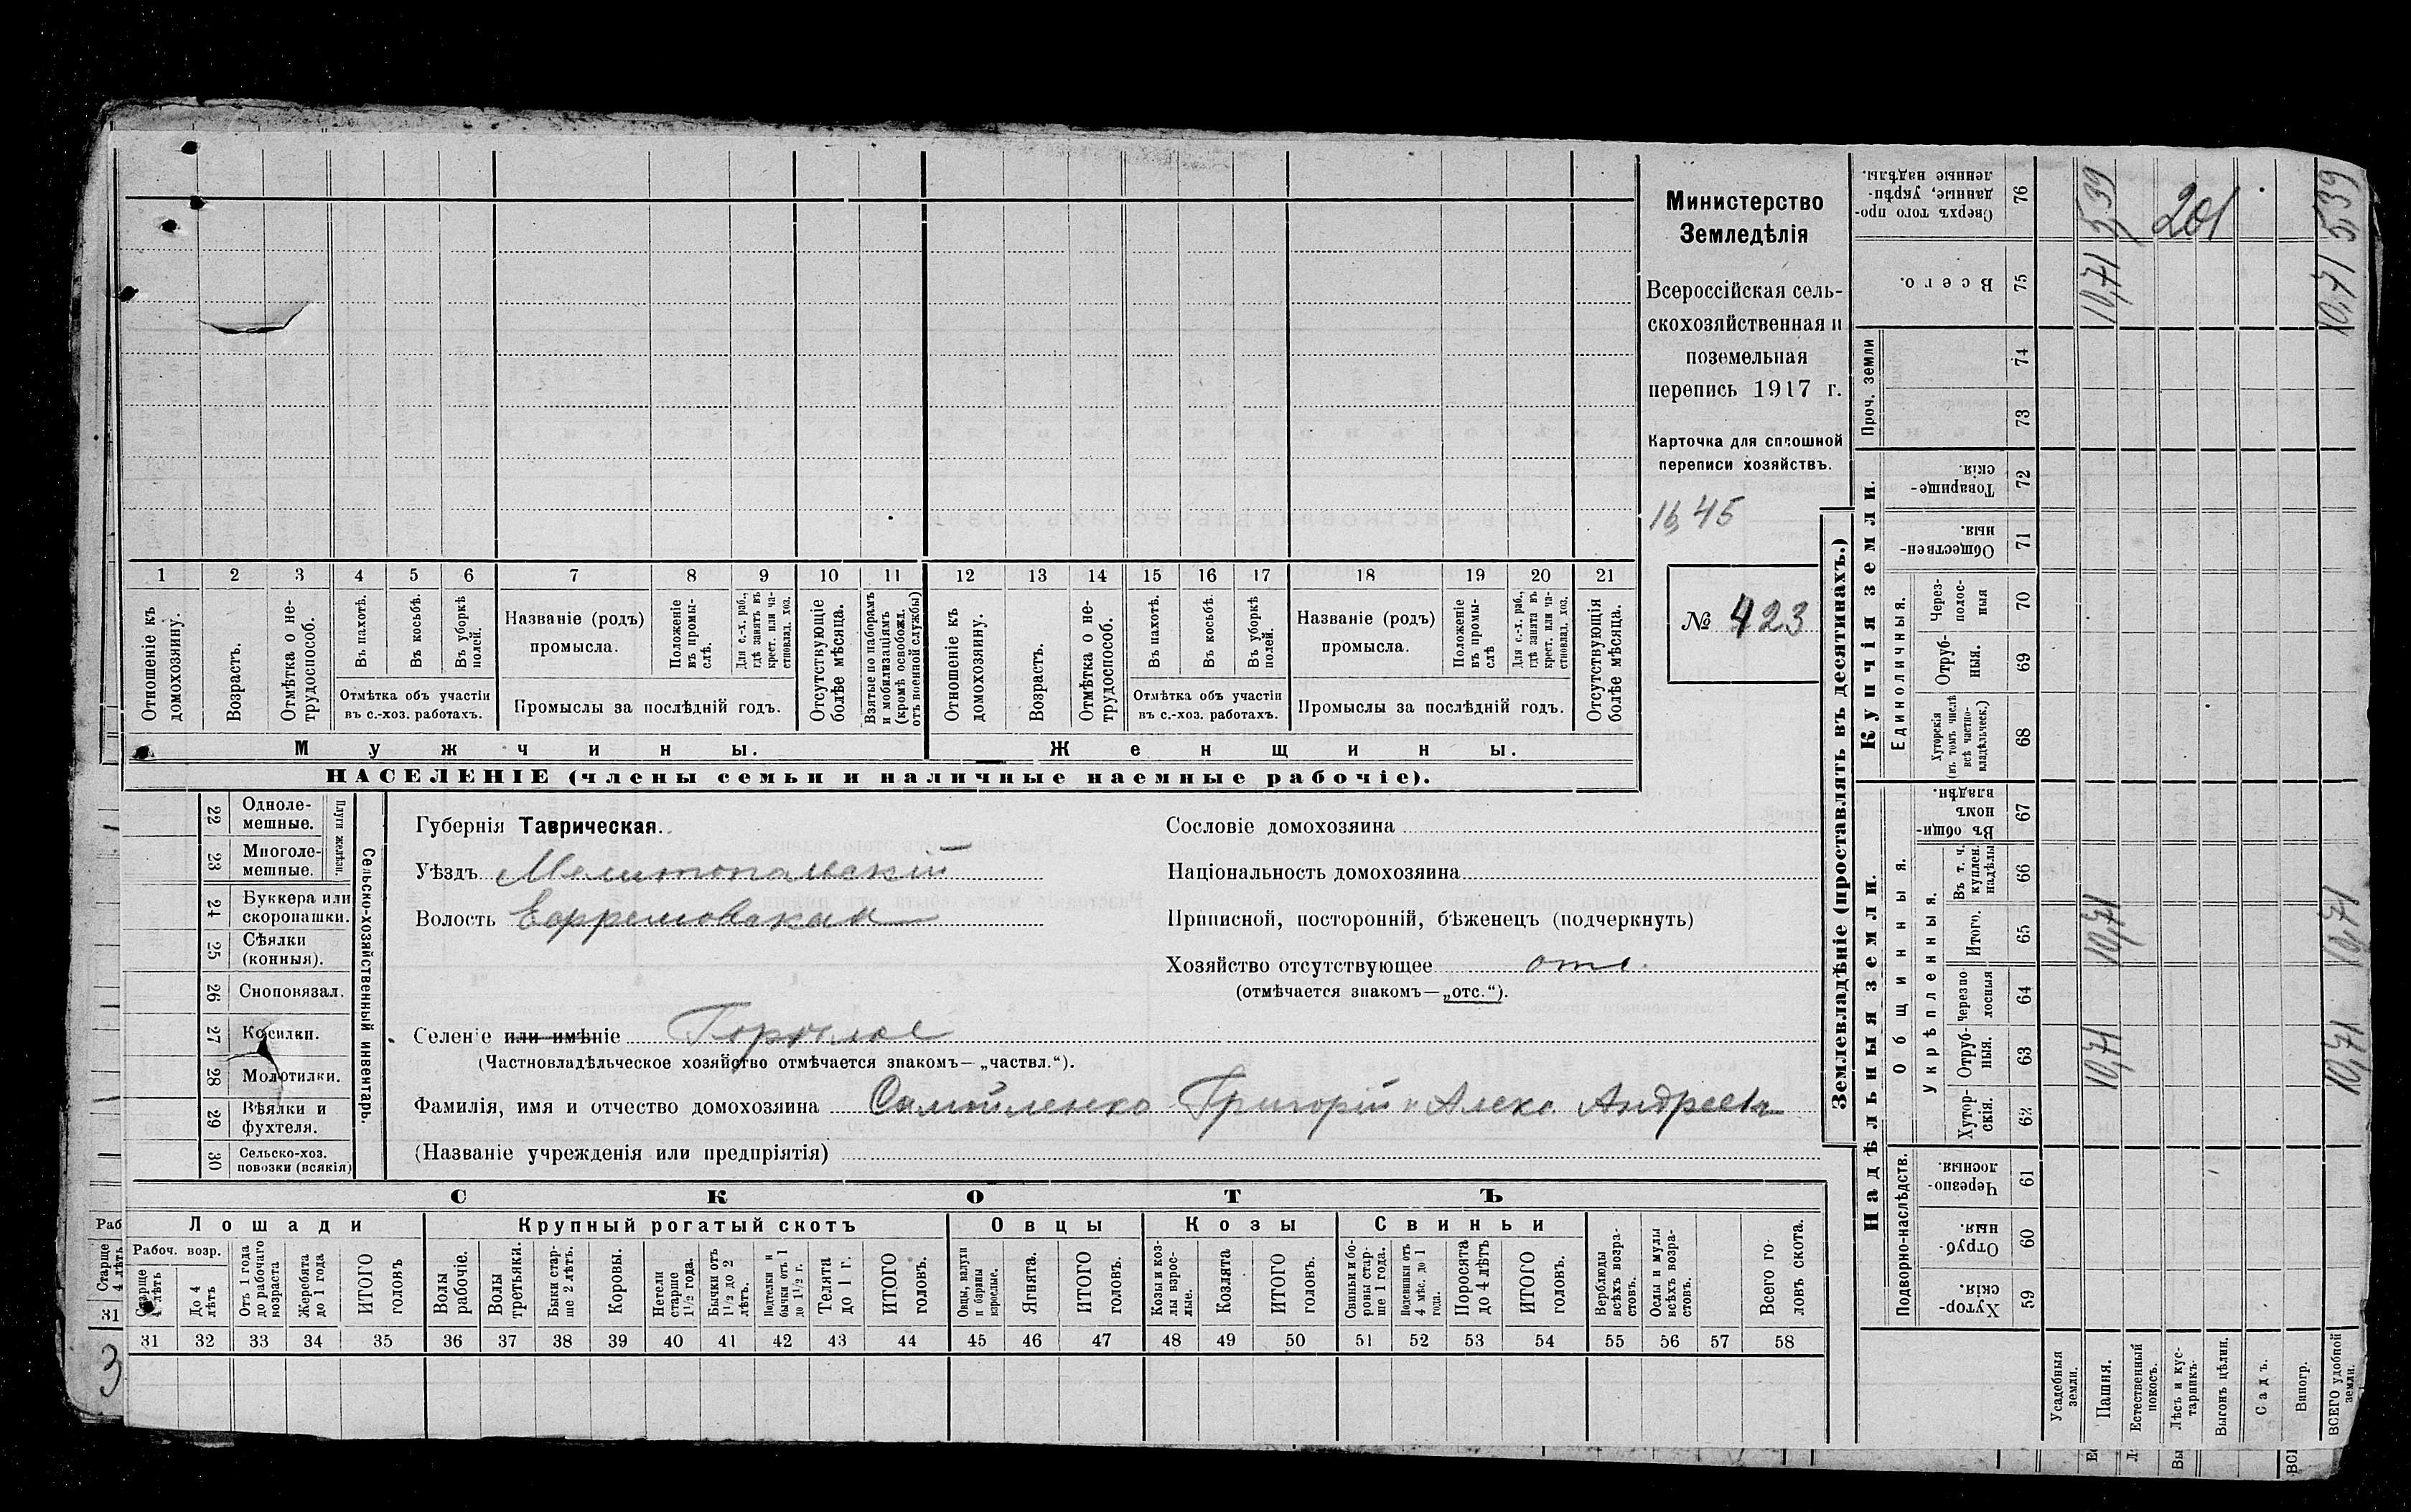 Министерство
Земледѣлія
Всероссійская сель-
скохозяйственная и
поземельная
перепись 1917 г.
Карточка для сплошной
переписи хозяйствъ.
16,45
№ 423
1 2 3 4 5 6 7 8 9 10 11 12 13 14 15 16 17 18 19 20 21
Отношеніе къ
домохозяину.
Возрастъ.
Отмѣтка о не-
трудоспособ.
Въ пахотѣ.
Въ косьбѣ.
Въ уборкѣ
полей.
Отмѣтка объ участіи
въ с.-хоз. работахъ.
Названіе (родъ)
промысла.
Положеніе
въ промы-
слѣ.
Для с.-х. раб.,
гдѣ занятъ въ
крест. или ча-
стновлад. хоз.
Промыслы за послѣдній годъ.
Отсутствующіе
болѣе мѣсяца.
Взятые по наборамъ
и мобилизаціямъ
(кромѣ освобожд.
отъ военной службы)
Отношеніе къ
домохозяину.
Возрастъ.
Отмѣтка о не-
трудоспособ.
Въ пахотѣ.
Въ косьбѣ.
Въ уборкѣ
полей.
Отмѣтка объ участіи
въ с.-хоз. работахъ.
Названіе (родъ)
промысла.
Положеніе
въ промы-
слѣ
Для с.-х. раб.,
гдѣ занята въ
крест. или ча-
стновлад. хоз.
Промыслы за послѣдній годъ.
Отсутствующія
болѣе мѣсяца.
Мужчины. Женщины.
НАСЕЛЕНІЕ (члены семьи и наличные наемные рабочіе).
Сельско-хозяйственный инвентарь.
Плуги желѣзн.
22 Одноле-
мешные.
23 Многоле-
мешные.
24 Буккера или
скоропашки.
25 Сѣялки
(конныя).
26 Сноповязал.
27 Косилки.
28 Молотилки.
29 Вѣялки и
фухтеля.
30 Сельско-хоз.
повозки (всякія)
Губернія Таврическая.
Уѣздъ Мелитопольскій
Волость Ефремовская
Селеніе или имѣніе Горѣлое
(Частновладѣльческое хозяйство отмѣчается знакомъ—„частвл.“).
Сословіе домохозяина
Національность домохозяина
Приписной, посторонній, бѣженецъ (подчеркнуть)
Хозяйство отсутствующее отс.
(отмѣчается знакомъ—„отс.“).
Фамилія, имя и отчество домохозяина Самойленко Григорій и Алекс. Андреевъ
(Названіе учрежденія или предпріятія)
СКОТЪ
Лошади Крупный рогатый скотъ Овцы Козы Свиньи
Рабоч. возр.
Старше
4 лѣтъ
До 4
лѣтъ
Отъ 1 года
до рабочаго
возраста
Жеребята
до 1 года
ИТОГО
головъ
Волы
рабочіе.
Волы
третьяки.
Быки стар-
ше 2 лѣтъ.
Коровы.
Нетели
старше
1½ года.
Бычки отъ
1½ до 2
лѣтъ.
Подтелки и
бычки отъ 1
до 1½ г.
Телята
до 1 г.
ИТОГО
головъ.
Овцы, валухи
и бараны
взрослые.
Ягнята.
ИТОГО
головъ.
Козы и коз-
лы взрос-
лые.
Козлята
ИТОГО
головъ.
Свиньи и бо-
ровы стар-
ше 1 года.
Подсвинки отъ
4 мѣс. до 1
года.
Поросята
до 4 лѣтъ
ИТОГО
головъ.
Верблюды
всѣхъ возра-
стовъ.
Ослы и мулы
всѣхъ возра-
стовъ.
Всего го-
ловъ скота.
31 32 33 34 35 36 37 38 39 40 41 42 43 44 45 46 47 48 49 50 51 52 53 54 55 56 57 58
Раб
Старше
4 лѣтъ
31
3
Землевладѣніе (проставлять въ десятинахъ.)
Надѣльныя земли. Купчія земли. Проч. земли
Подворно-наслѣдств.
Общинныя.
Укрѣпленныя.
Единоличныя.
Хутор-
скія 59
Отруб-
ныя. 60
Черезпо-
лосныя. 61
Хутор-
скія. 62
Отруб-
ныя. 63
Черезпо
лосныя 64
Итого. 65
Въ т. ч.
куплен.
надѣлы 66
Въ общин-
номъ
владѣн. 67
Хуторскія
(въ томъ числѣ
всѣ частно-
владѣльческ.) 68
Отруб-
ныя. 69
Через-
полос-
ныя 70
Обществен-
ныя. 71
Товарище-
скія. 72
73
74
Всего. 75
Сверхъ того про-
данные, укрѣп-
ленные надѣлы. 76
Усадебныя
земли.
Пашня.
Естественный
покосъ.
Лѣсъ и кус-
тарникъ.
Выгонъ цѣлин.
Садъ.
Виногр.
ВСЕГО удобной
земли.
10,71 10,71 10,71 5,39
201
10,71 10,71 10,71 5,39